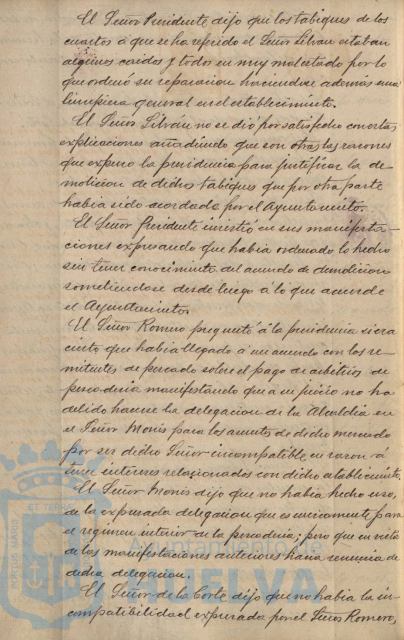 El Señor Presidente dijo que los tabiques de los
cuartos á que se ha referido el Señor Silvan estaban
algunos caidos y todos en muy mal estado por lo
que ordenó su reparacion haciendose además una
limpieza general en el establecimiento.
El Señor Silván no se dió por satisfecho con estas
explicaciones añadiendo que son otras las razones
que espero la presidencia para justificar la de-
molicion de dichos tabiques que por otra parte
habia sido acordada por el Ayuntamiento.
El Señor Presidente insistió en sus manifesta-
ciones expresando que habia ordenado lo hecho
sin tener conocimiento del acuerdo de demolicion
sometiendose desde luego á lo que acuerde
el Ayuntamiento.
El Señor Romero preguntó á la presidencia si era
cierto que habia llegado á un acuerdo con los re-
mitentes de pescado sobre el pago de arbitrios de
pescaderia manifestando que á su juicio no ha
debido hacerse la delegacion de la Alcaldia en
el Señor Monís para los asuntos de dicho mercado
por ser dicho Señor incompatible en razon á
tener intereses relacionados con dicho establecimiento.
El Señor Monís dijo que no habia hecho uso
de la expresada delegacion que es unicamente para
el régimen interior de la pescaderia; pero que en vista
de las manifestaciones anteriores hacia renuncia de
dicha delegacion.
El Señor de la Corte dijo que no habia la in-
compatibilidad expresada por el Señor Romero,
PORTUS MARIS
ET TERRÆ
HUELVA